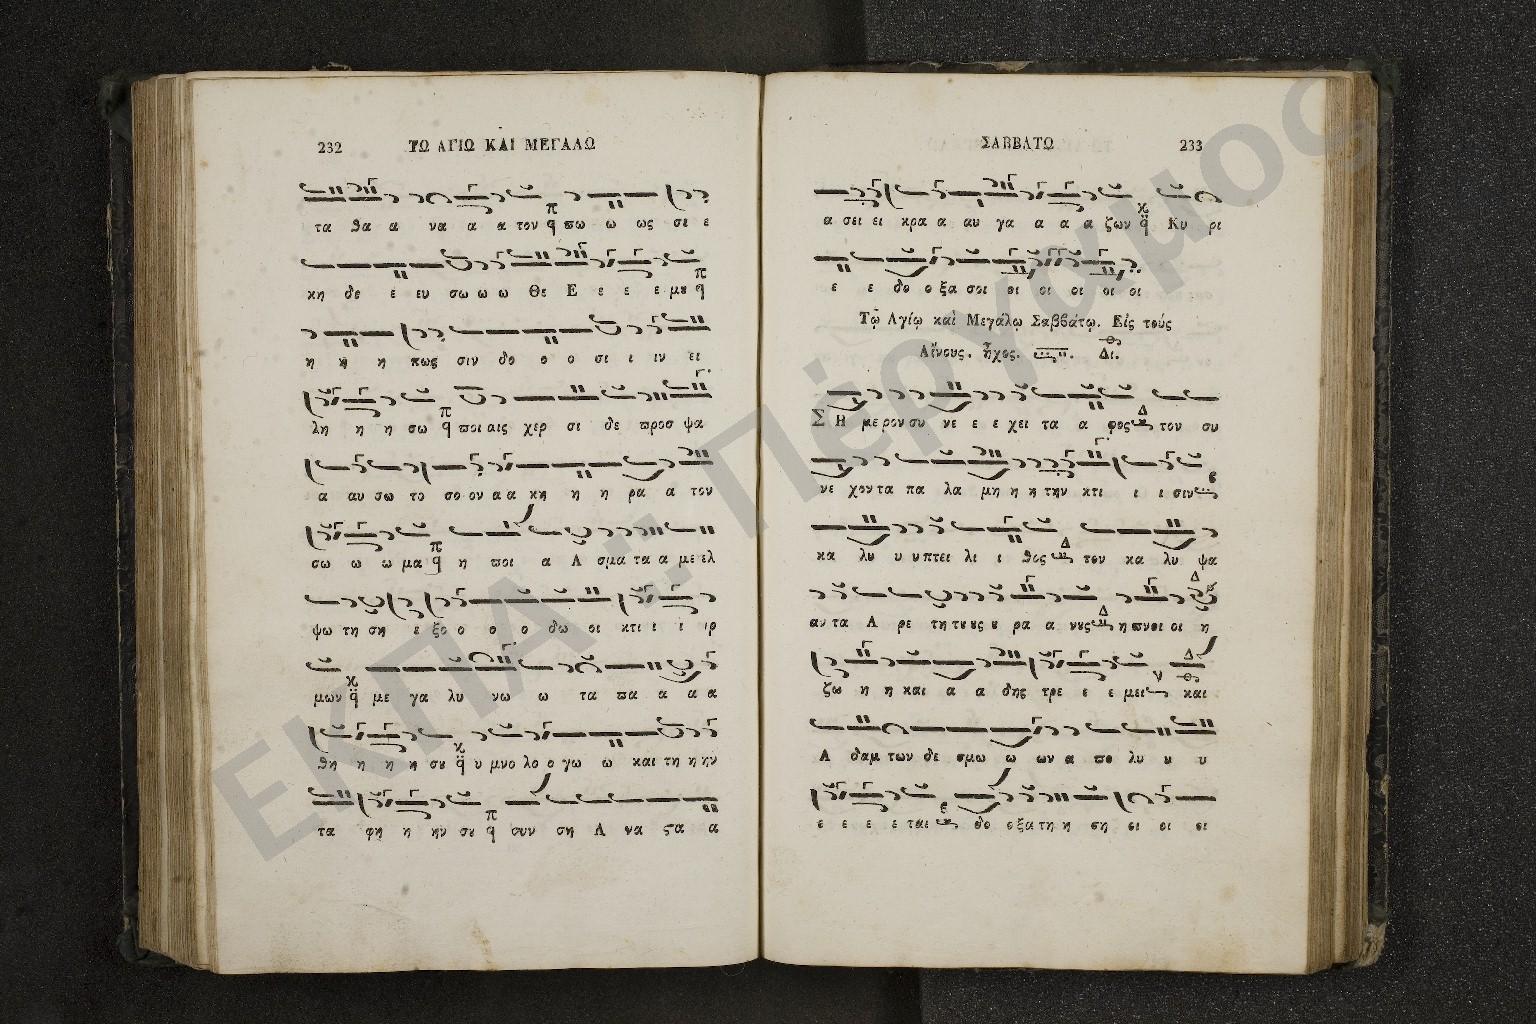 232 ΤΩ ΑΓΙΩ ΚΑΙ ΜΕΓΑΛΩ
τα θα α να α α τον πω ω ως σε ε
κη δε ε ευ σω ω ω Θε Ε ε ε ε μȣ
η η η πως σιν δο ο ο σι ι ιν ει
λη η η σω ποι αις χερ σι δε προσ ψα
α αυ σω το σο ον α α κη η η ρα α τον
σω ω ω μα η ποι α Α σμα τα α με ελ
ψω τη ση ε ξο ο ο ο δω οι κτι ι ι ιρ
μων με γα λυ νω ω τα πα α α α
θη η η η σȣ υ μνο λο ο γω ω και τη η ην
τα φη η ην σȣ συν ση Α να ϛα α
ΣΑΒΒΑΤΩ 233
α σει ει κρα α αυ γα α α α ζων Κυ ρι
ε ε δο ο ξα σοι οι οι οι οι οι
Τῷ Αγίῳ καὶ Μεγάλῳ Σαββάτῳ. Εἰς τούς
Αἴνους. ἦχος. Δι.
Σ Η με ρον συ νε ε ε χει τα α φος τον συ
νε χον τα πα λα μη η η την κτι ι ι σιν
κα λυ υ υπτει λι ι θος τον κα λυ ψα
αν τα Α ρε τη τȣς ȣ ρα α νȣς η πνοι οι η
ζω η η και α α δης τρε ε ε μει και
Α δαμ των δε σμω ω ων α πο λυ υ υ
ε ε ε ε ται δο ο ξα τη η ση οι οι οι
ΕΚΠΑ :: Πέργαμος